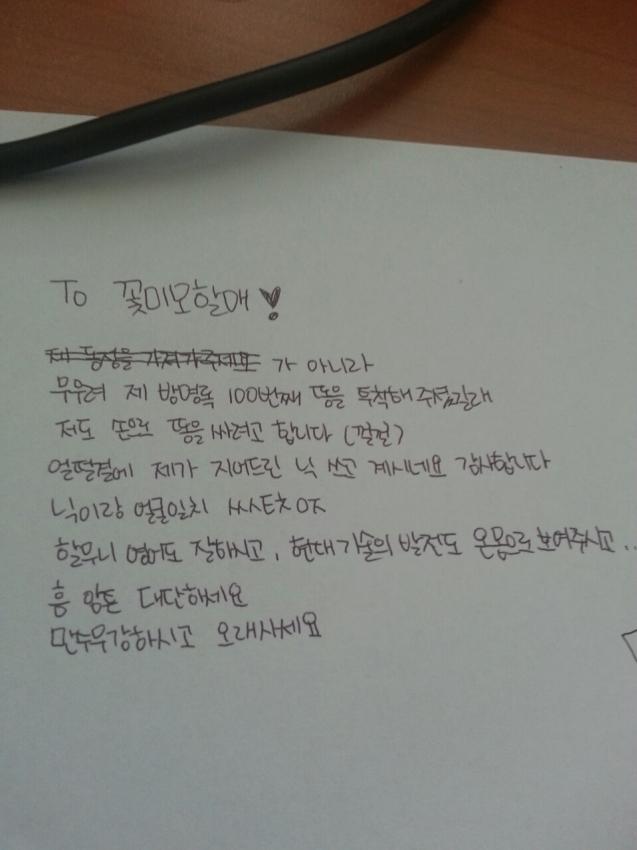 To 꽃미모할매♥
제 동정을 가져가주세요 가 아니라
무우려 제 방명록 100번째 똥을 투척해주셨길래
저도 손으로 똥을 싸려고 합니다 (껄껄)
얼떨결에 제가 지어드린 닉 쓰고 계시네요 감사합니다
닉이랑 얼굴일치 싸스트
할무니 영어도 잘하시고, 현대기술의 발전도 온몸으로 보여주시고..
흠 암튼 대단하세요
만수무강하시고 오래사세요